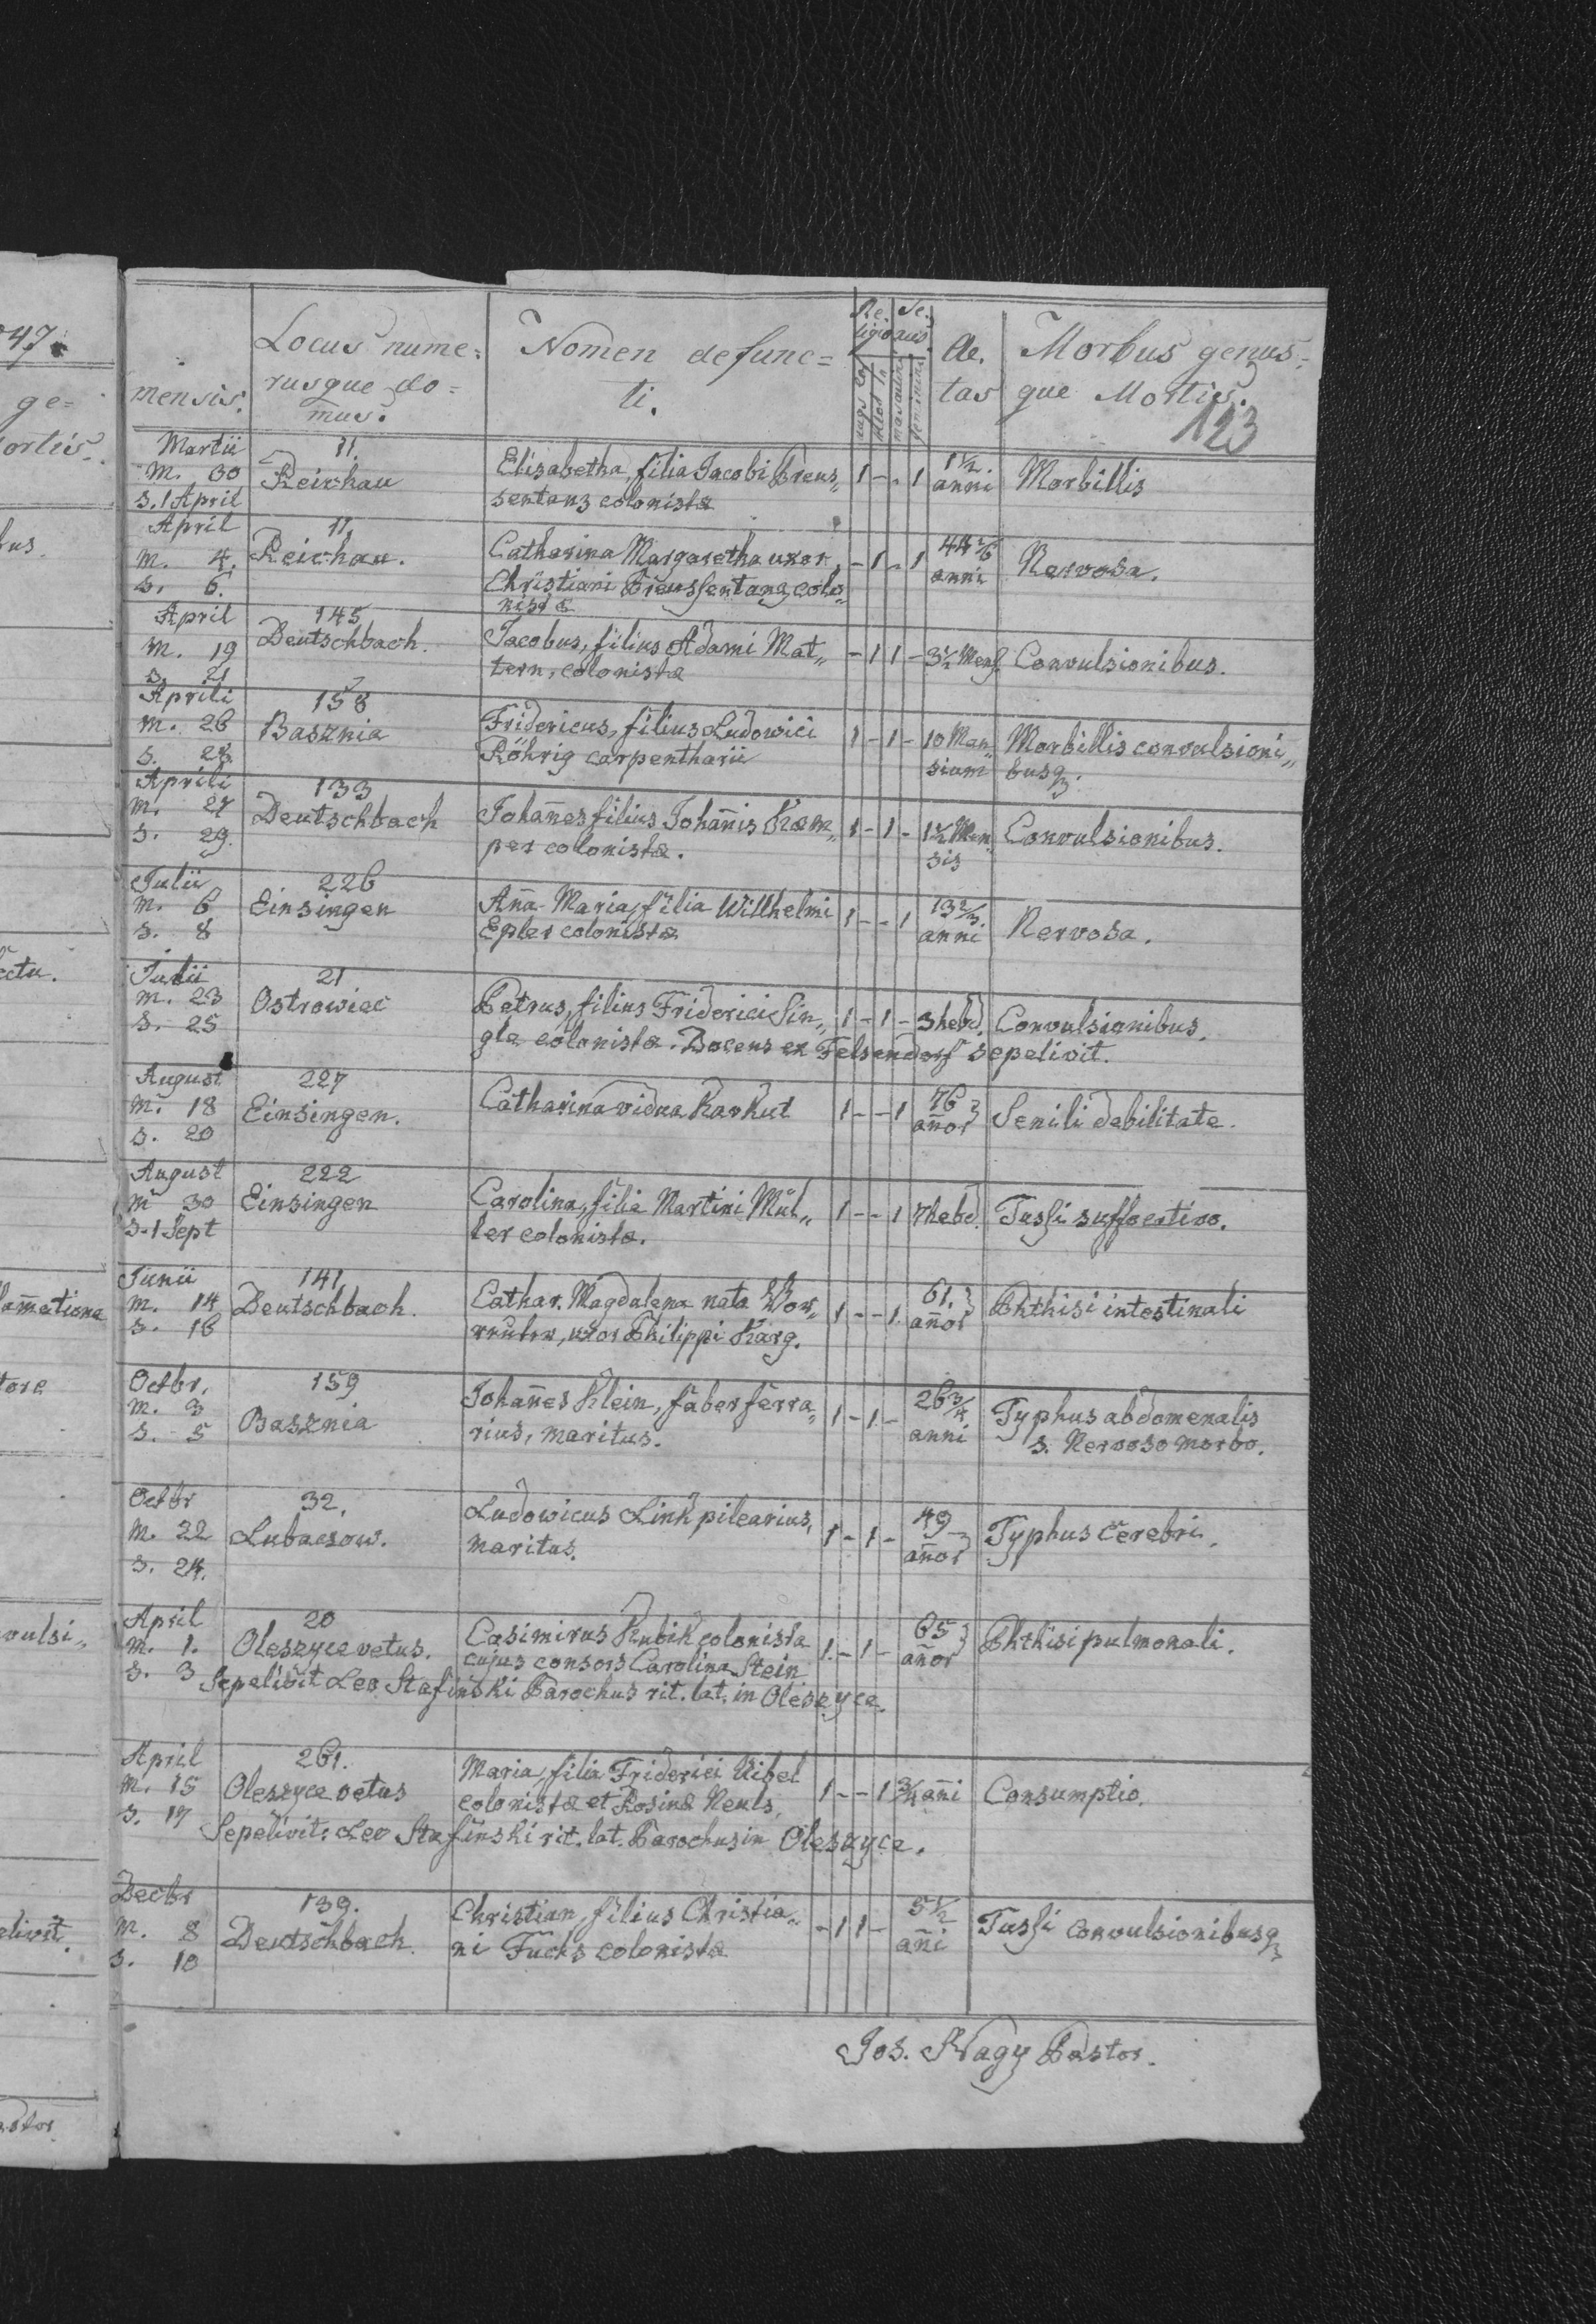 47.
ge=
ortis.
bus.
ectu.
lam̄ationa
tore
nvulsi„
elivit
astor
mensis.
Locus nume=
rusque do=
mus.
Nomen defunc=
ti.
Re.
ligio
Se.
xus
masculin
feminin
Ae.
tas
Morbus genus=
que Mortis.
123
Martii
m. 30
s. 1 April
11.
Reichau
Elisabetha, filia Jacobi Preus„
sentanz colonistæ
1 - - 1
1½.
anni
Morbillis
April
m. 4.
s. 6.
11.
Reichau.
Catharina Margaretha uxor
Christiani Preussentanz colo„
nistæ
- 1 - 1
anni
Nervosa.
April
m. 19
s. 21
145
Deutschbach.
Jacobus, filius Adami Mat„
tern, colonistæ
- 1 1 -
3½ Mens.
Convulsionibus.
Aprili
m. 26
s. 28.
158
Basznia
Fridericus, filius Ludowici
Röhrig carpentharii
1 - 1 -
10 Men„
sium
Morbillis convulsioni„
busq.
Aprili
m. 27
s. 29.
133
Deutschbach
Johan̄es filius Johan̄is Kem„
per colonistæ.
1 - 1 -
1½ Men„
sis
Convulsionibus.
Julii
m. 6
s. 8
226
Einsingen
An̄a Maria, filia Willhelmi
Epler colonistæ
1 - - 1
13⅔
anni
Nervosa.
Julii
m. 23
s. 25
21
Ostrowiec
Petrus, filius Friderici Sin„
gle colonistæ. Docens ex Felsendorf sepelivit.
1 - 1 -
3 hebd.
Convulsionibus.
August
m. 18
s. 20
227
Einsingen.
Catharina vidua Karkut
1 - - 1
76
an̄or
Senili debilitate.
August
m 30
s. 1 Sept
222
Einsingen
Carolina, filia Martini Mül„
ler colonistæ.
1 - - 1
7 hebd.
Tussi suffocativo.
Junii
m. 14
s. 16
141,
Deutschbach.
Cathar. Magdalena nata
uxor Philippi Karg.
1 - - 1.
61.
an̄or
Phthisi intestinali
Octbr.
m. 3
s. 5
159
Basznia
Johan̄es Klein, faber ferra„
rius, maritus.
1 - 1 -
26¾
anni
Typhus abdomenalis
s. Nervoso morbo.
Octbr
m. 22
s. 24.
32.
Lubaczow.
Ludowicus Link pilearius,
maritus.
1 - 1 -
49
an̄or
Typhus Cerebri.
April
m. 1.
s. 3
20
Oleszyce vetus.
Casimirus Kubik colonista
cujus consors Carolina Stein
Sepelivit Leo Stafinski Parochus rit. lat. in Oleszyce.
1. - 1 -
65
an̄or
Phthisi pulmonali.
April
m. 15
s. 17
261.
Oleszyce vetus
Maria, filia Friderici Uibel
colonistæ et Rosinæ Neuls,
Sepelivit: Leo Stafinski rit. lat. Parochus in Oleszyce.
1 - - 1
¾ an̄i
Consumptio.
Decbr
m. 8
s. 10
139.
Deutschbach.
Christian, filius Christia„
ni Fuchs colonistæ
- 1 1 -
5½
an̄i
Tussi convulsionibusq
Jos. Nagy Pastor.